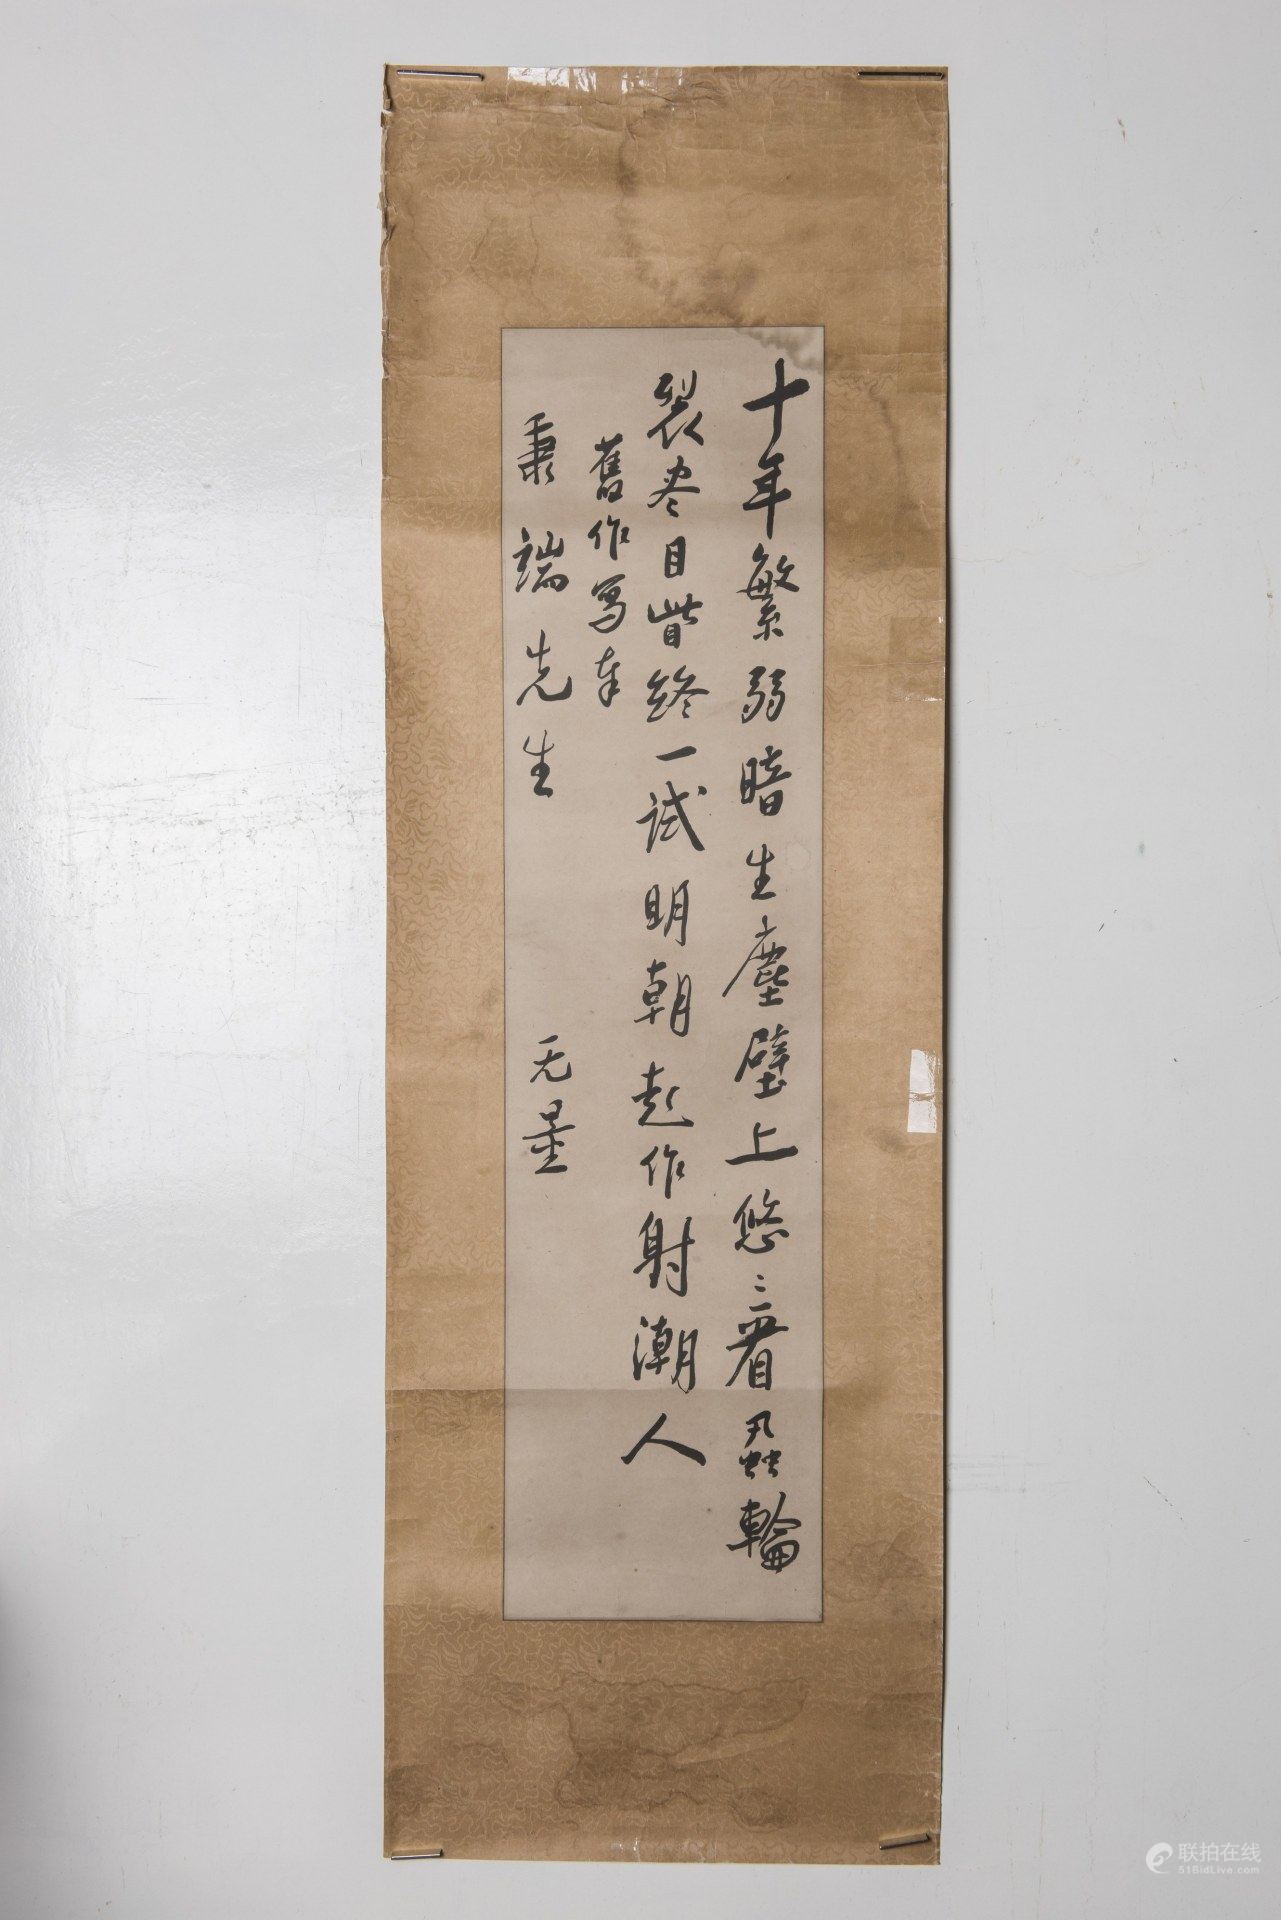 十年繁弱暗生塵壁上悠〻看蝨輪
裂盡目眥終一試明朝起作射潮人
舊作寫奉
秉端先生
无量
联拍在线
51BidLive.com